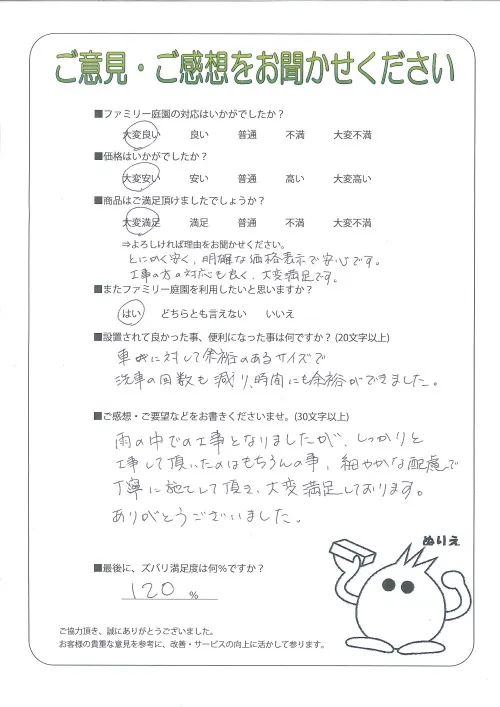 ご意見・ご感想をお聞かせください
■ファミリー庭園の対応はいかがでしたか？
大変良い 良い 普通 不満 大変不満
■価格はいかがでしたか？
大変安い 安い 普通 高い 大変高い
■商品はご満足頂けましたでしょうか？
大変満足 満足 普通 不満 大変不満
⇒よろしければ理由をお聞かせください。
とにかく安く、明確な価格表示で安心です。
工事の方の対応も良く、大変満足です。
■またファミリー庭園を利用したいと思いますか？
はい どちらとも言えない いいえ
■設置されて良かった事、便利になった事は何ですか？(20文字以上)
車に対して余裕のあるサイズで
洗車の回数も減り、時間にも余裕ができました。
■ご感想・ご要望などをお書きくださいませ。(30文字以上)
雨の中での工事となりましたが、しっかりと
工事して頂いたのはもちろんの事、細やかな配慮で
丁寧に施工して頂き、大変満足しております。
ありがとうございました。
ぬりえ
■最後に、ズバリ満足度は何％ですか？
120 %
ご協力頂き、誠にありがとうございました。
お客様の貴重な意見を参考に、改善・サービスの向上に活かして参ります。